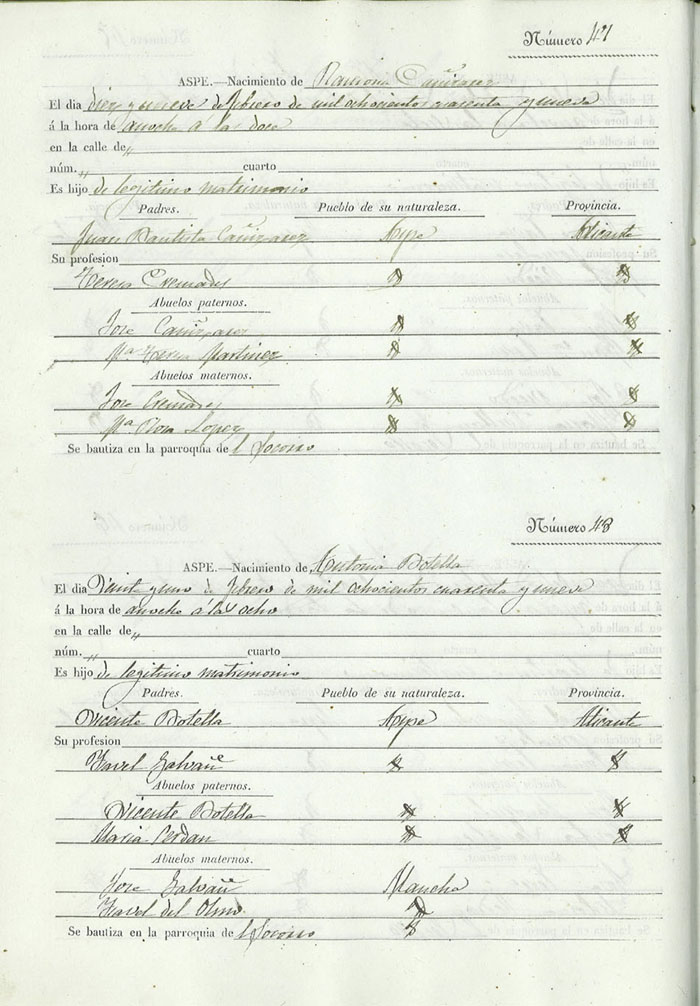 Número 47
ASPE.—Nacimiento de Ramona Cañizarez
El dia diez y nueve de febrero de mil ochocientos cuarenta y nueve
á la hora de anoche a las doce
en la calle de „
núm. „ cuarto
Es hijo de legitimo matrimonio
Padres. Pueblo de su naturaleza. Provincia.
Juan Bautista Cañizarez Aspe Alicante
Su profesion
Teresa Cremades
Abuelos paternos.
Jose Cañizarez
Mª Teresa Martinez
Abuelos maternos.
Jose Cremades
Mª Rosa Lopez
Se bautiza en la parroquia de l Socorro
Número 48
ASPE.—Nacimiento de Antonia Botella
El dia Veint y uno de febrero de mil ochocientos cuarenta y nueve
á la hora de anoche á las ocho
en la calle de „
núm. „ cuarto
Es hijo de legitimo matrimonio
Padres. Pueblo de su naturaleza. Provincia.
Vicente Botella Aspe Alicante
Su profesion
Galvañ
Abuelos paternos.
Vicente Botella
Maria Cerdan
Abuelos maternos.
Jose Galvañ Mancha
del Olmo
Se bautiza en la parroquia de l Socorro